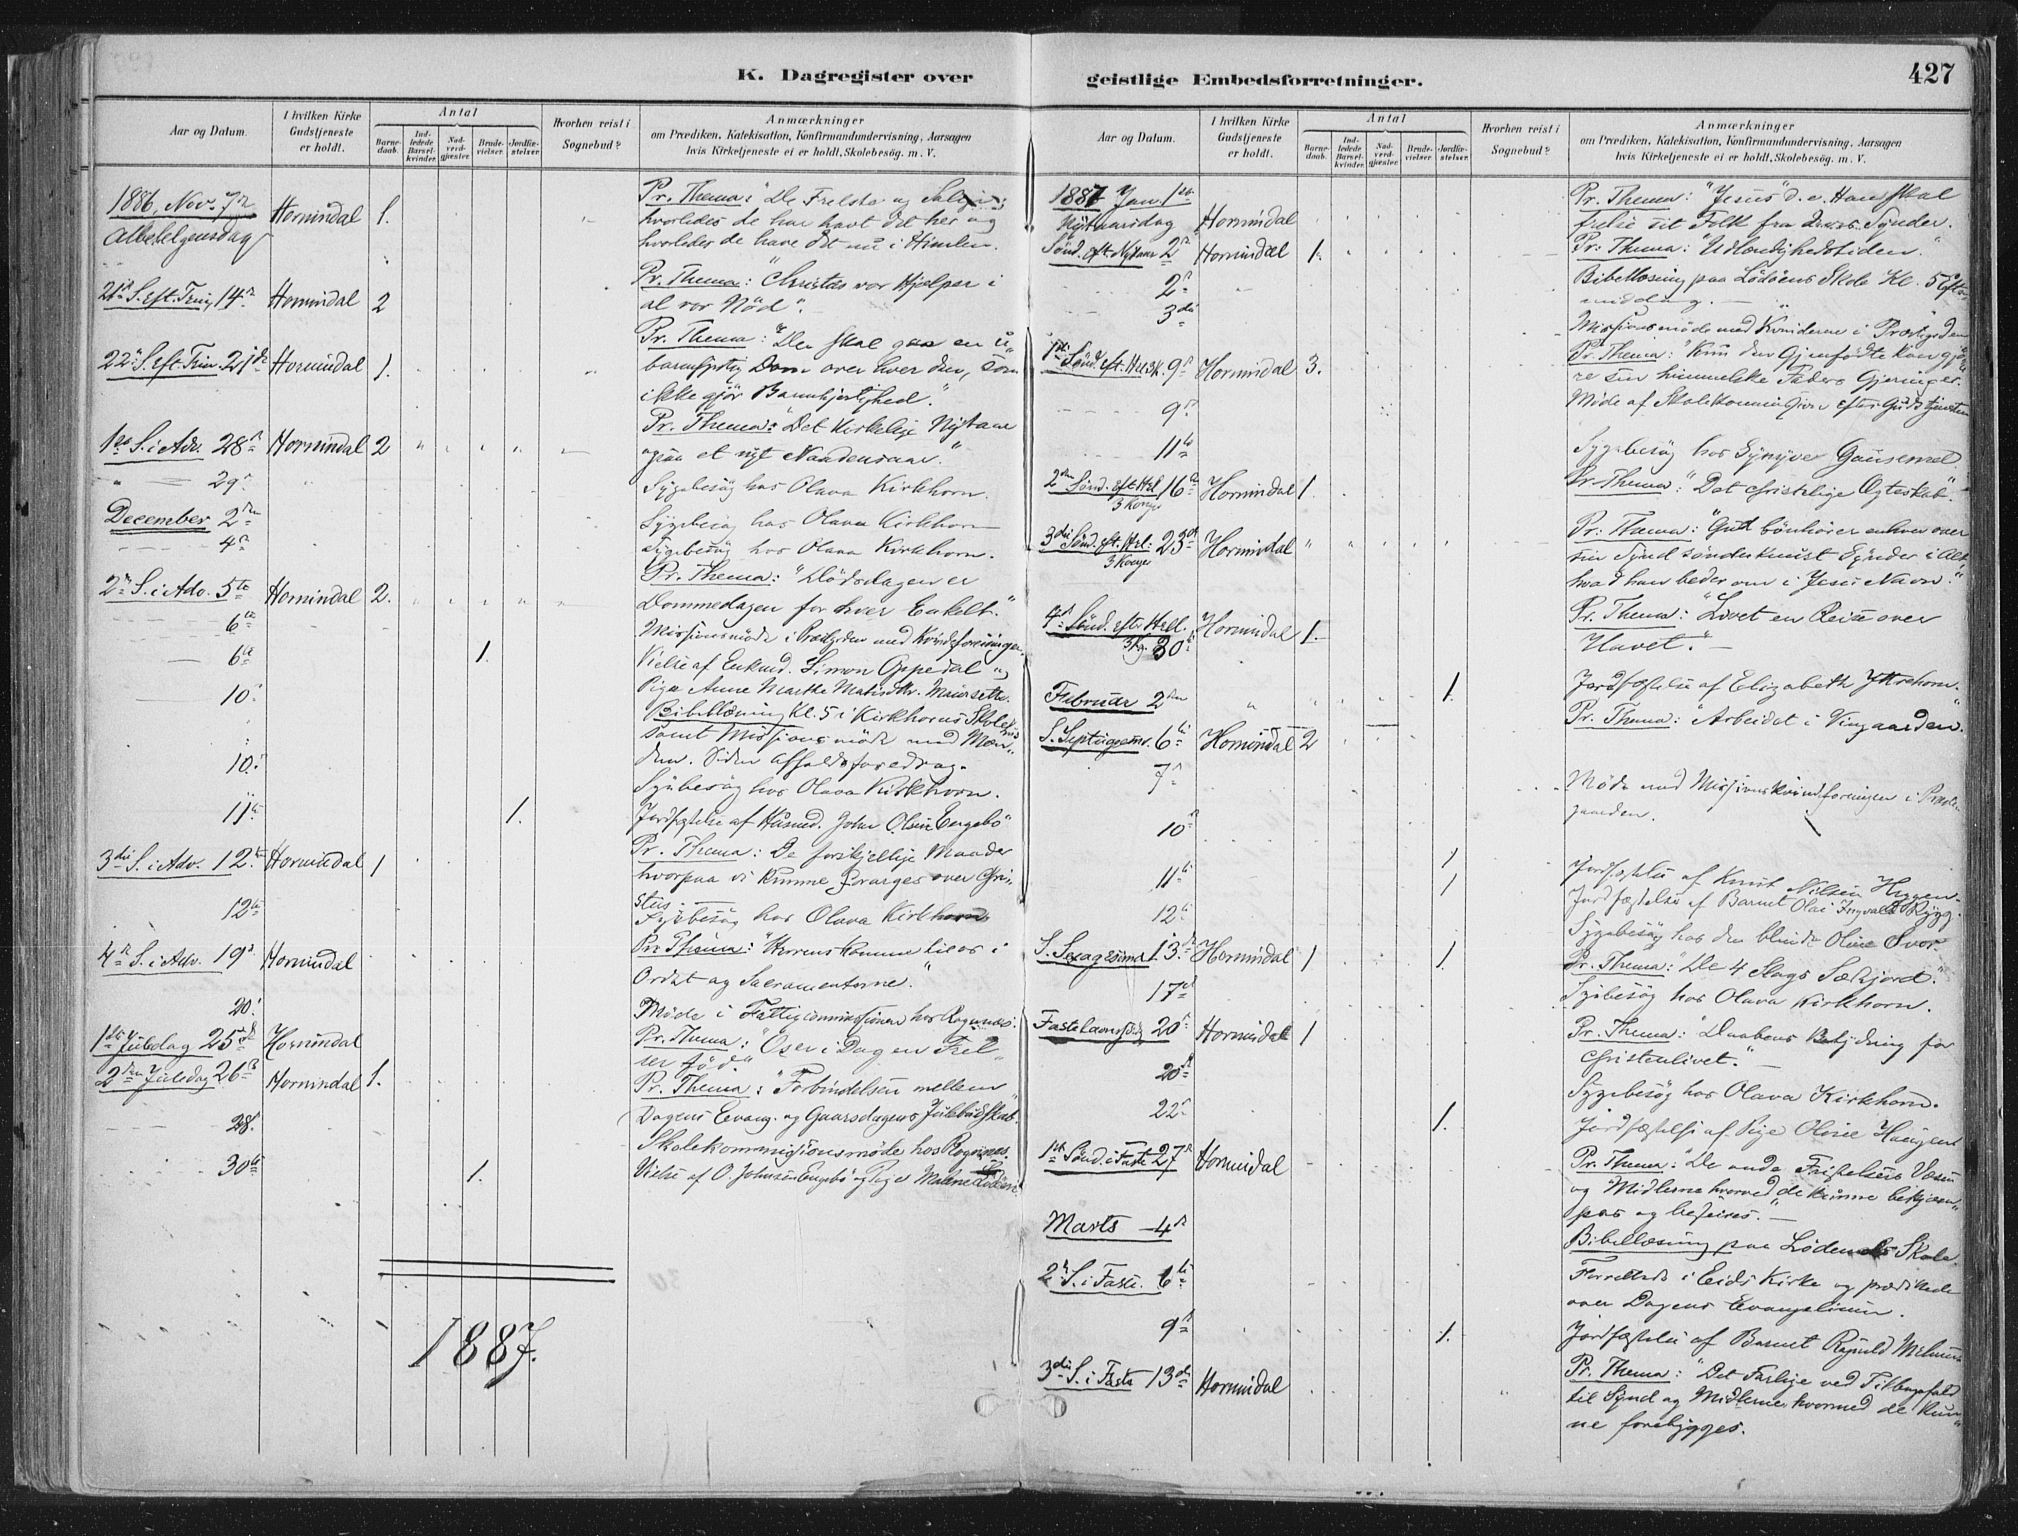 K. Dagregister over
Aar og Datum.
I hvilken Kirke Gudstjeneste er holdt.
Antal
Barnedaab.
Indledede Barselkvinder.
Nadverdgjester.
Brudevielser.
Jordfæstelser.
Hvorhen reist i Sognebud?
Anmærkninger
om Prædiken, Katekisation, Konfirmandundervisning, Aarsagen
hvis Kirketjeneste ei er holdt, Skolebesøg. m. V.
1886, Nov. 7de Hornindal 1. Pr. Thema: "De Frelste og Salige;
Allehelgensdag hvorledes de har havt det her og
hvorledes de have det nu i Himlen.
21de S. eft. Trin. 14de Hornindal 2 Pr. Thema: "Christus vor Hjælper i
al vor Nöd".
22de S. eft. Trin. 21de Hornindal 1. Pr. Thema: "Der skal gaa en u-
barmhjertig Dom over hver den, som
ikke gjör Barmhjertighed."
1ste S. i Adv. 28de Hornindal 2 Pr. Thema: "Det Kirkelige Nytaar
ogsaa et nyt Naadensaar."
29de Sygebesög hos Olava Kirkhorn.
December 2den Sygebesög hos Olava Kirkhorn
4de Sygebesög hos Olava Kirkhorn.
2den S. i Adv. 5te Hornindal 2. Pr. Thema: "Dödsdagen er
Dommedagen for hver Enkelt."
6te Missionsmöde i Præstgrden med Kvindeforeningen.
6te 1. Vielse af Enkmd. Simon Oppedal og
Pige Anne Marthe Matisdtr. Maurseth.
10. Bibellæsning Kl. 5 i Kirkhorns Skolehus
samt Missionsmöde med Mæn-
den. Siden Afholdsforedrag.
10. Sygebesög hos Olava Kirkhorn.
11te 1. Jordfæstelse af Husmd. John Olsen Engebö
3die S. i Adv. 12te Hornindal 1 Pr. Thema: De forskjellige Maader
hvorpaa vi kunne forarges over Chri-
stus.
12te Sygebesög hos Olava Kirkhorn
4de S. i Adv. 19de Hornindal Pr. Thema: "Herrens Komme til os i
Ordet og Sacramenterne."
20. Möde i Fattigcommissionen hos Ragnnæs.
1ste Juledag 25de Hornindal Pr. Thema: "Os er i Dag en Frel-
ser födt."
2den Juledag 26de Hornindal 1. Pr. Thema: "Forbindelsen mellem
Dagens Evang. og Gaarsdagens Julebudskab.
28. Skolekommissionsmöde hos Rognnæs.
30te 1. Vielse af O. Johnsen Engebö og Pige Malene
1887.
geistlige Embedsforretninger.
427
Aar og Datum.
I hvilken Kirke Gudstjeneste er holdt.
Antal
Barnedaab.
Indledede Barselkvinder.
Nadverdgjester.
Brudevielser.
Jordfæstelser.
Hvorhen reist i Sognebud?
Anmærkninger
om Prædiken, Katekisation, Konfirmandundervisning, Aarsagen
hvis Kirketjeneste ei er holdt, Skolebesøg. m. V.
1887 Jan. 1ste Pr. Thema: "Jesus" d. e. Han skal
Nytaarsdag Hornindal frelse sit Folk fra deres Synder.
Sönd. eft. Nytaar 2den Hornindal 1. Pr. Thema: "Udlændighedstiden."
2den Bibellæsning paa Lödöens Skole Kl. 5 Efter-
middag.
3die Missionsmöde med Kvinderne i Præstegden
1ste Sönd. eft. Hel. 3K. 9de Hornindal 3. Pr. Thema: "Kun den Gjenfödte kan gjö-
re sin himmelske Faders Gjerninger.
9de Möde af Skolekommissionen efter Gudstjenesten
11te Sygebesög hos Synnöve Gausemel.
2den Sönd. eft. Hel. 3 Konger 16te Hornindal 1. Pr. Thema: "Det christelige Ægteskab".
3die Sönd. eft. Hel. 3 Konger 23de Hornindal Pr. Thema: "Gud bönhörer enhver over
sin Synd sönderknust Synder i Alt
hvad han beder om i Jesu Navn."
4de Sönd. efter Hell. 3 Kg. 30te Hornindal 1. Pr. Thema: "Livet en Reise over
Havet."
Februar 2den 1. Jordfæstelse af Elizabeth Ytrehorn.
S. Septuages. 6te Hornindal 2 Pr. Thema: "Arbeidet i Vingaarden."
7de Möde med Missionskvindeforeningen i Præste-
gaarden.
10de 1 Jordfæstelse af Knut Nilsen Heggen
11te 1 Jordfæstelse af Barnet Olai Ingvald Rygg.
12te Sygebesög hos den blinde Oline Svor.
S. Sexagesima 13de Hornindal 1 1. Pr. Thema: "De 4 Slags Sædejord".
17de Sygebesög hos Olava Kirkhorn.
Fastelavnssöndag 20de Hornindal 1 Pr. Thema: "Daabens Betydning for
Christenlivet."
20de Sygebesög hos Olava Kirkhorn.
22de 1. Jordfæstelse af Pige Oline Haugen
1ste Sönd. i Faste 27de Hornindal Pr. Thema: "De onde Fristelsers Væsen
og Midlerne hvorved de kunne bekjæm-
pes og beseires."
Marts 4de Bibellæsning paa Lödemels Skole
2den S. i Faste 6te Forrettede i Eids Kirke og prædikede
over Dagens Evangelium.
9de 1. Jordfæstelse af Barnet Ragnild Melheim
3die S. i Faste 13de Hornindal Pr. Thema: "Det Farlige ved Tilbagefald
til Synd og Midlerne, hvormed de kun-
ne forebygges.